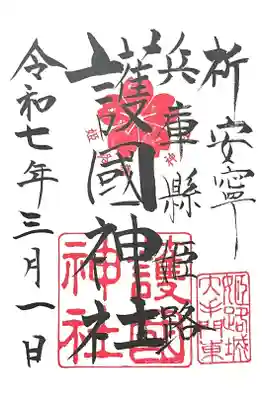 祈安寧
兵庫縣姫路
護國神社
令和七年三月一日
姫路城
大手門東
護國
神社